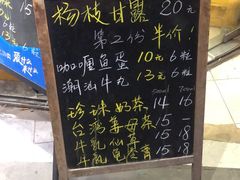 杨枝甘露 20元
第二份半价!
咖喱鱼蛋 10元6粒
潮汕牛丸 13元6粒
珍珠奶茶 14 16
台湾姜母茶 15 -
牛乳仙草 15 18
牛乳龟苓膏 15 18